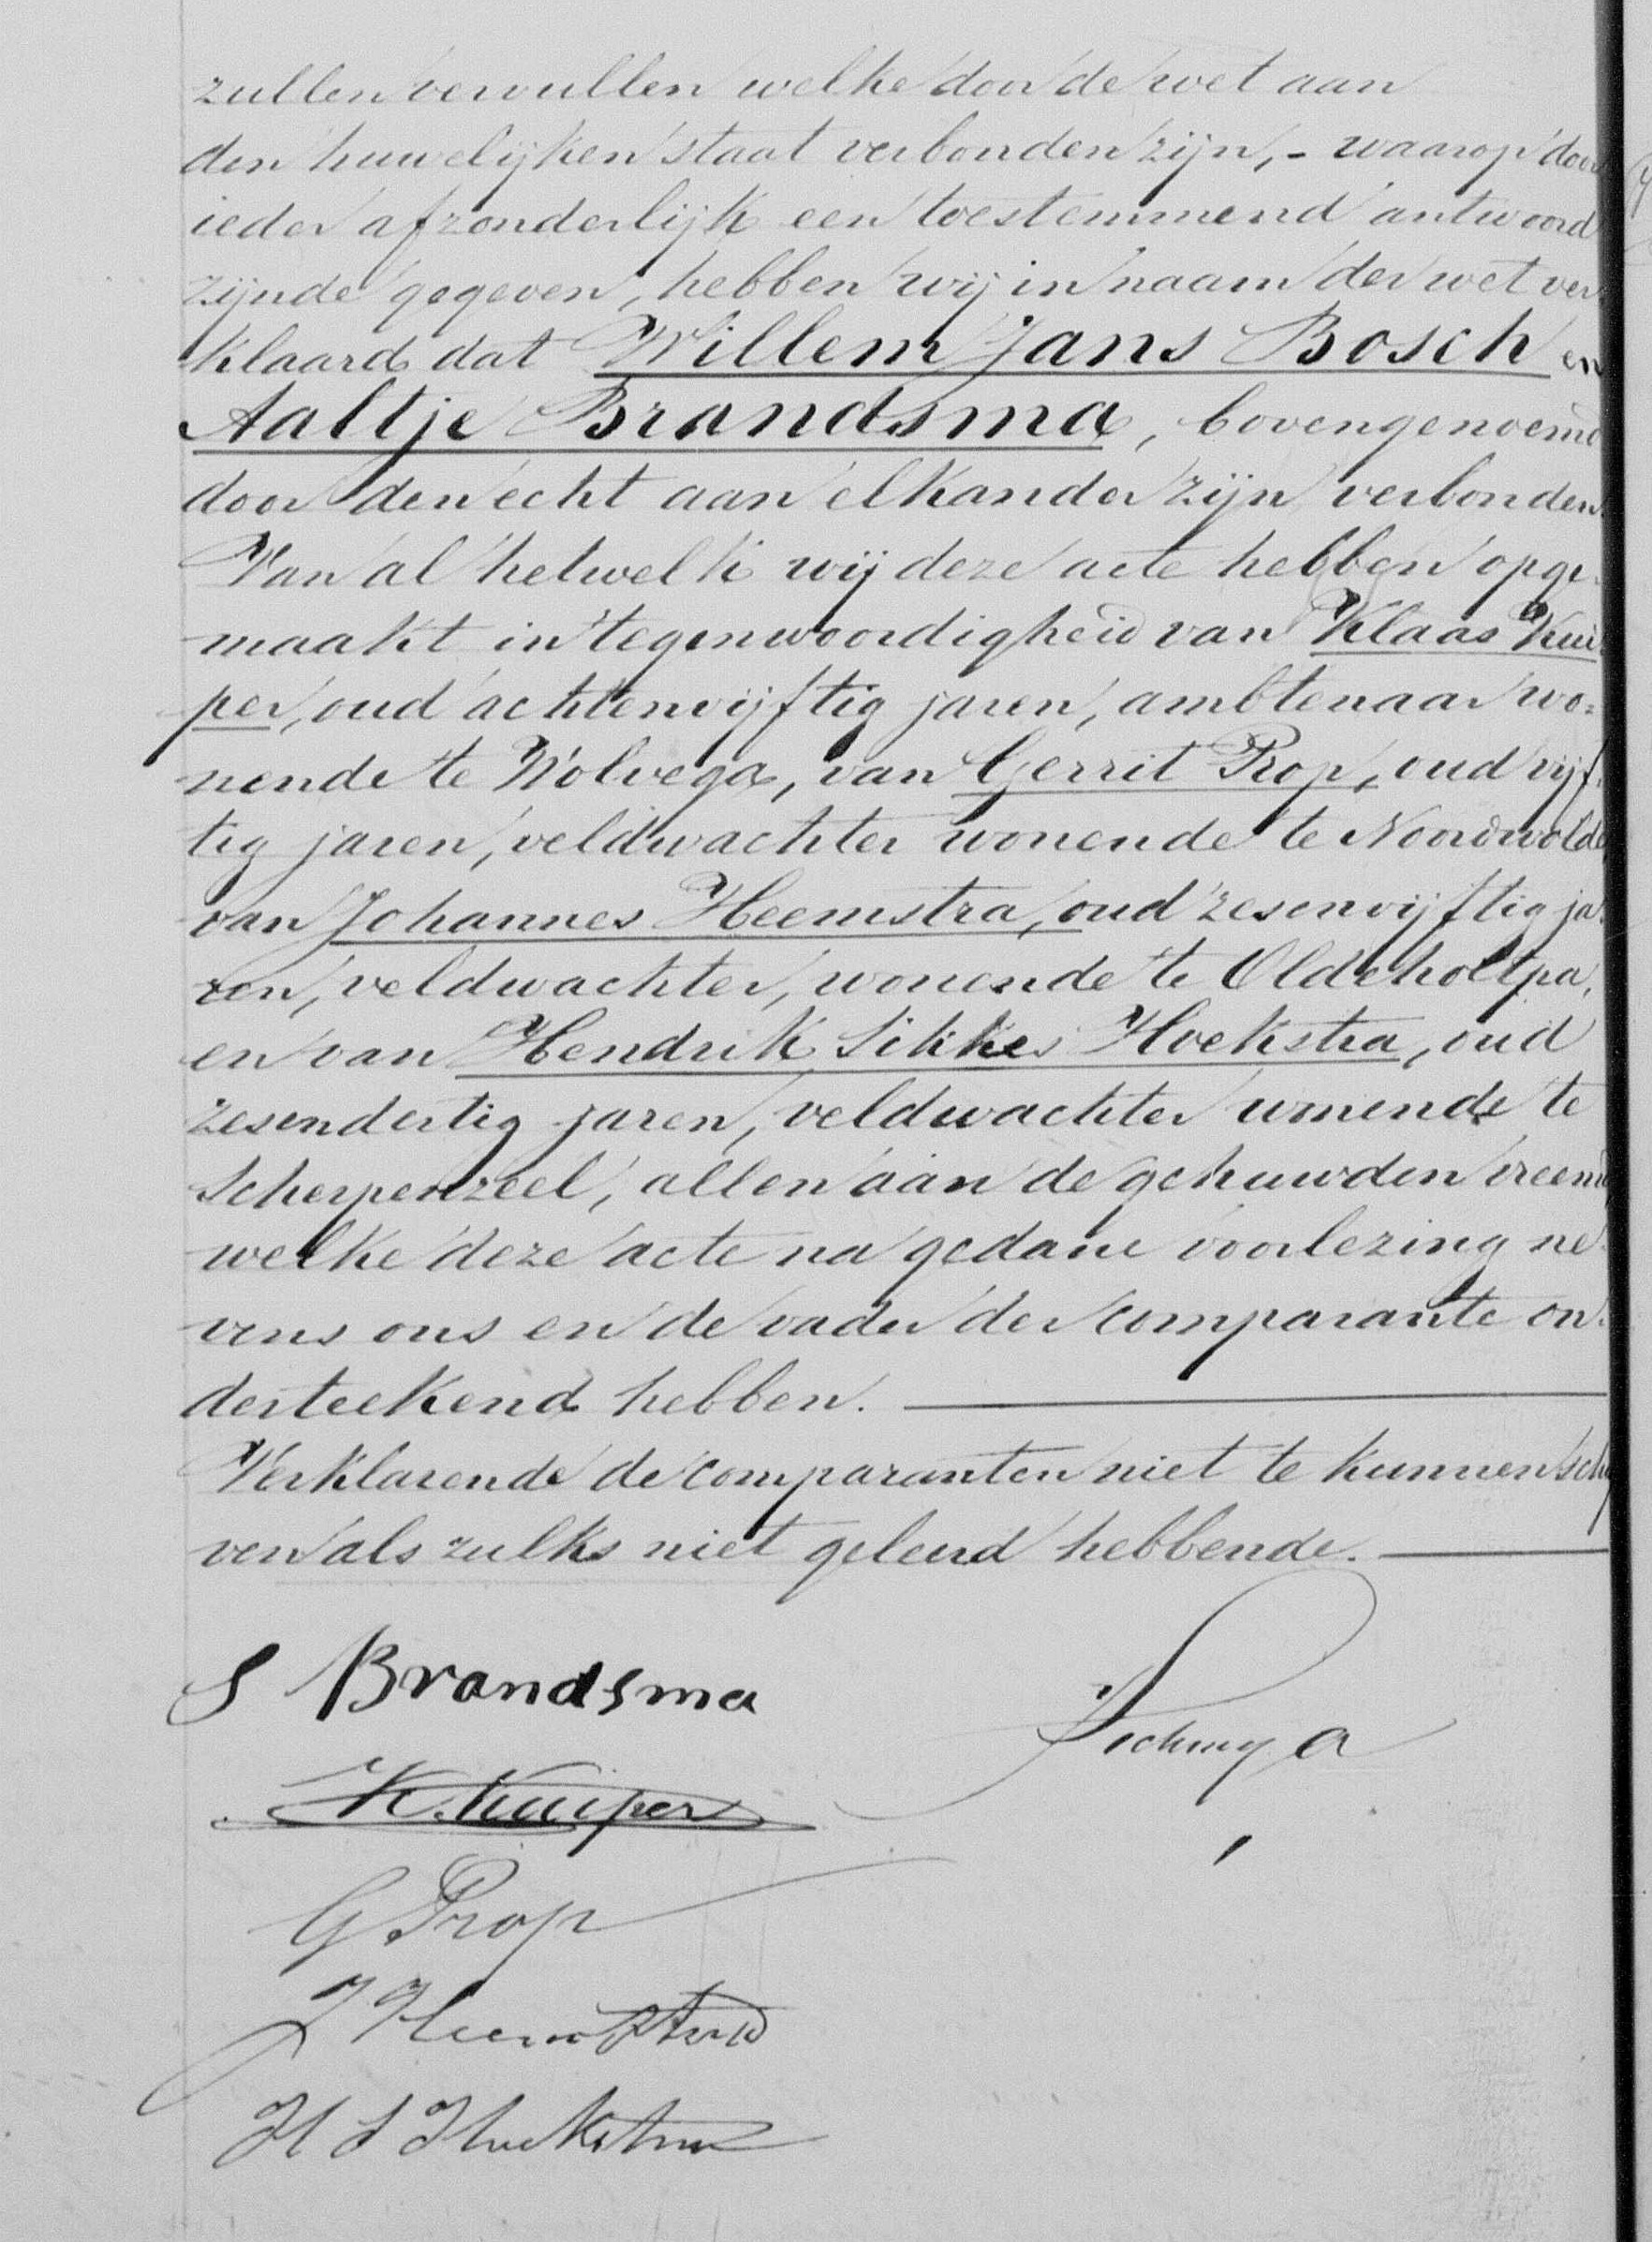 zullen vervullen welke door de wet aan
den huwelijken staat verbonden zijn, - waarop door
ieder afzonderlijk een toestemmend antwoord
zijnde gegeven, hebben wij in naam der wet ver
klaard dat Willem Jans Bosch en
Aaltje Brandsma, bovengenoemd
door den echt aan elkander zijn verbonden.
Van al hetwelk wij deze acte hebben opge-
maakt in tegenwoordigheid van Klaas Kui
per, oud achtenvijftig jaren, ambtenaar wo=
nende te Wolvega, van Gerrit Prop, oud vijf-
tig jaren, veldwachter wonende te Noordwolde
van Johannes Heemstra, oud zesenvijftig ja-
ren, veldwachter, wonende te Oldeholtpa,
en van Hendrik Sikkes Hoekstra, oud
zesendertig jaren, veldwachter wonende te
Scherpenzeel, allen aan de gehuwden vreemd
welke deze acte na gedane voorlezing ne-
vens ons en de vader der comparante on-
derteekend hebben.
Verklarende de comparanten niet te kunnen schrij
ven als zulks niet geleerd hebbende.
S Brandsma
K. Kuiper
G Prop
J Heemstra
H S Hoekstra